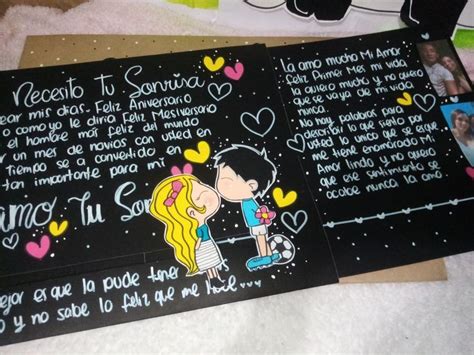 Necesito Tu Sonrisa
ear mis dias. Feliz Aniversario
o como yo le diria Feliz Mesiversario
el hombre más feliz del mundo
r un mes de novios con usted en
tiempo se a convertido en
tan importante para mi
amo Tu Son
ejor es que la pude tener
o y no sabe lo feliz que me
la amo mucho Mi Amor
feliz Primer Mes mi vida
la quiero mucho y no quiero
que se vaya de mi vida
nunca.
No hay palabras para
describir lo que siento por
usted lo unico que se es que
me tiene enamorado Mi
Amor lindo y no quiero
que ese sentimiento se
acabe nunca la amo.